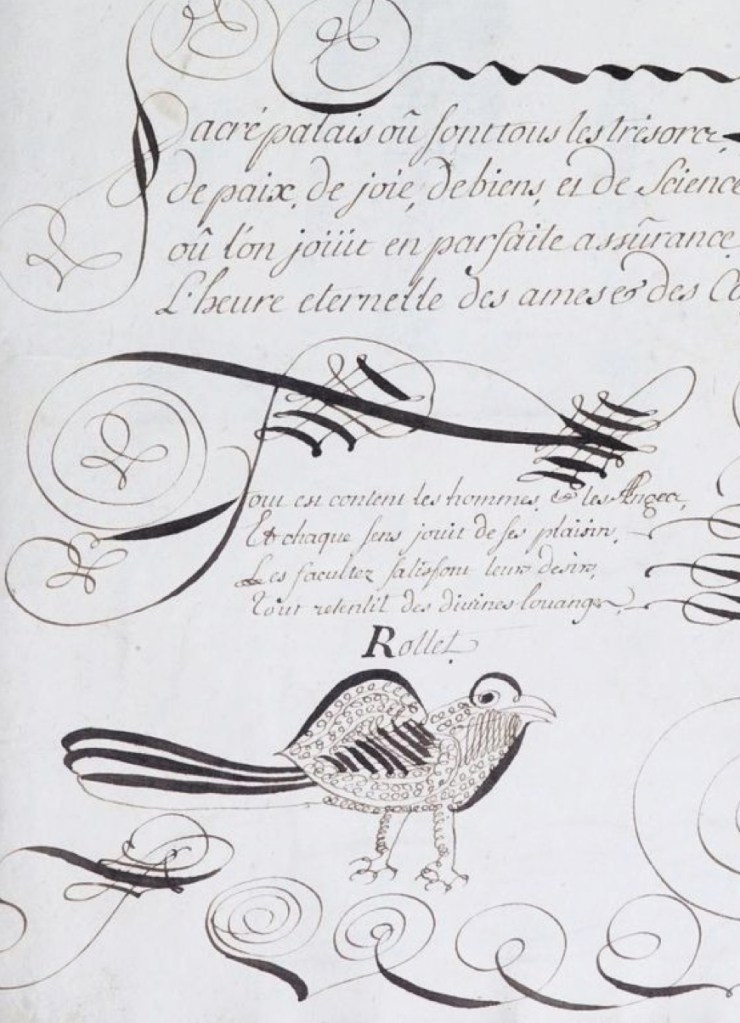 Sacré palais oû sont tous les trésorz,
de paix, de joie, de biens, et de Science
oû l'on joüit en parfaite assûrance
L'heure eternelle des ames & des Co
Tout est content les hommes, & les Anges,
Et chaque sens jouit de ses plaisirs,
Les facultez satisfont leurs desirs,
Tout retentit des divines louanges
Rollet